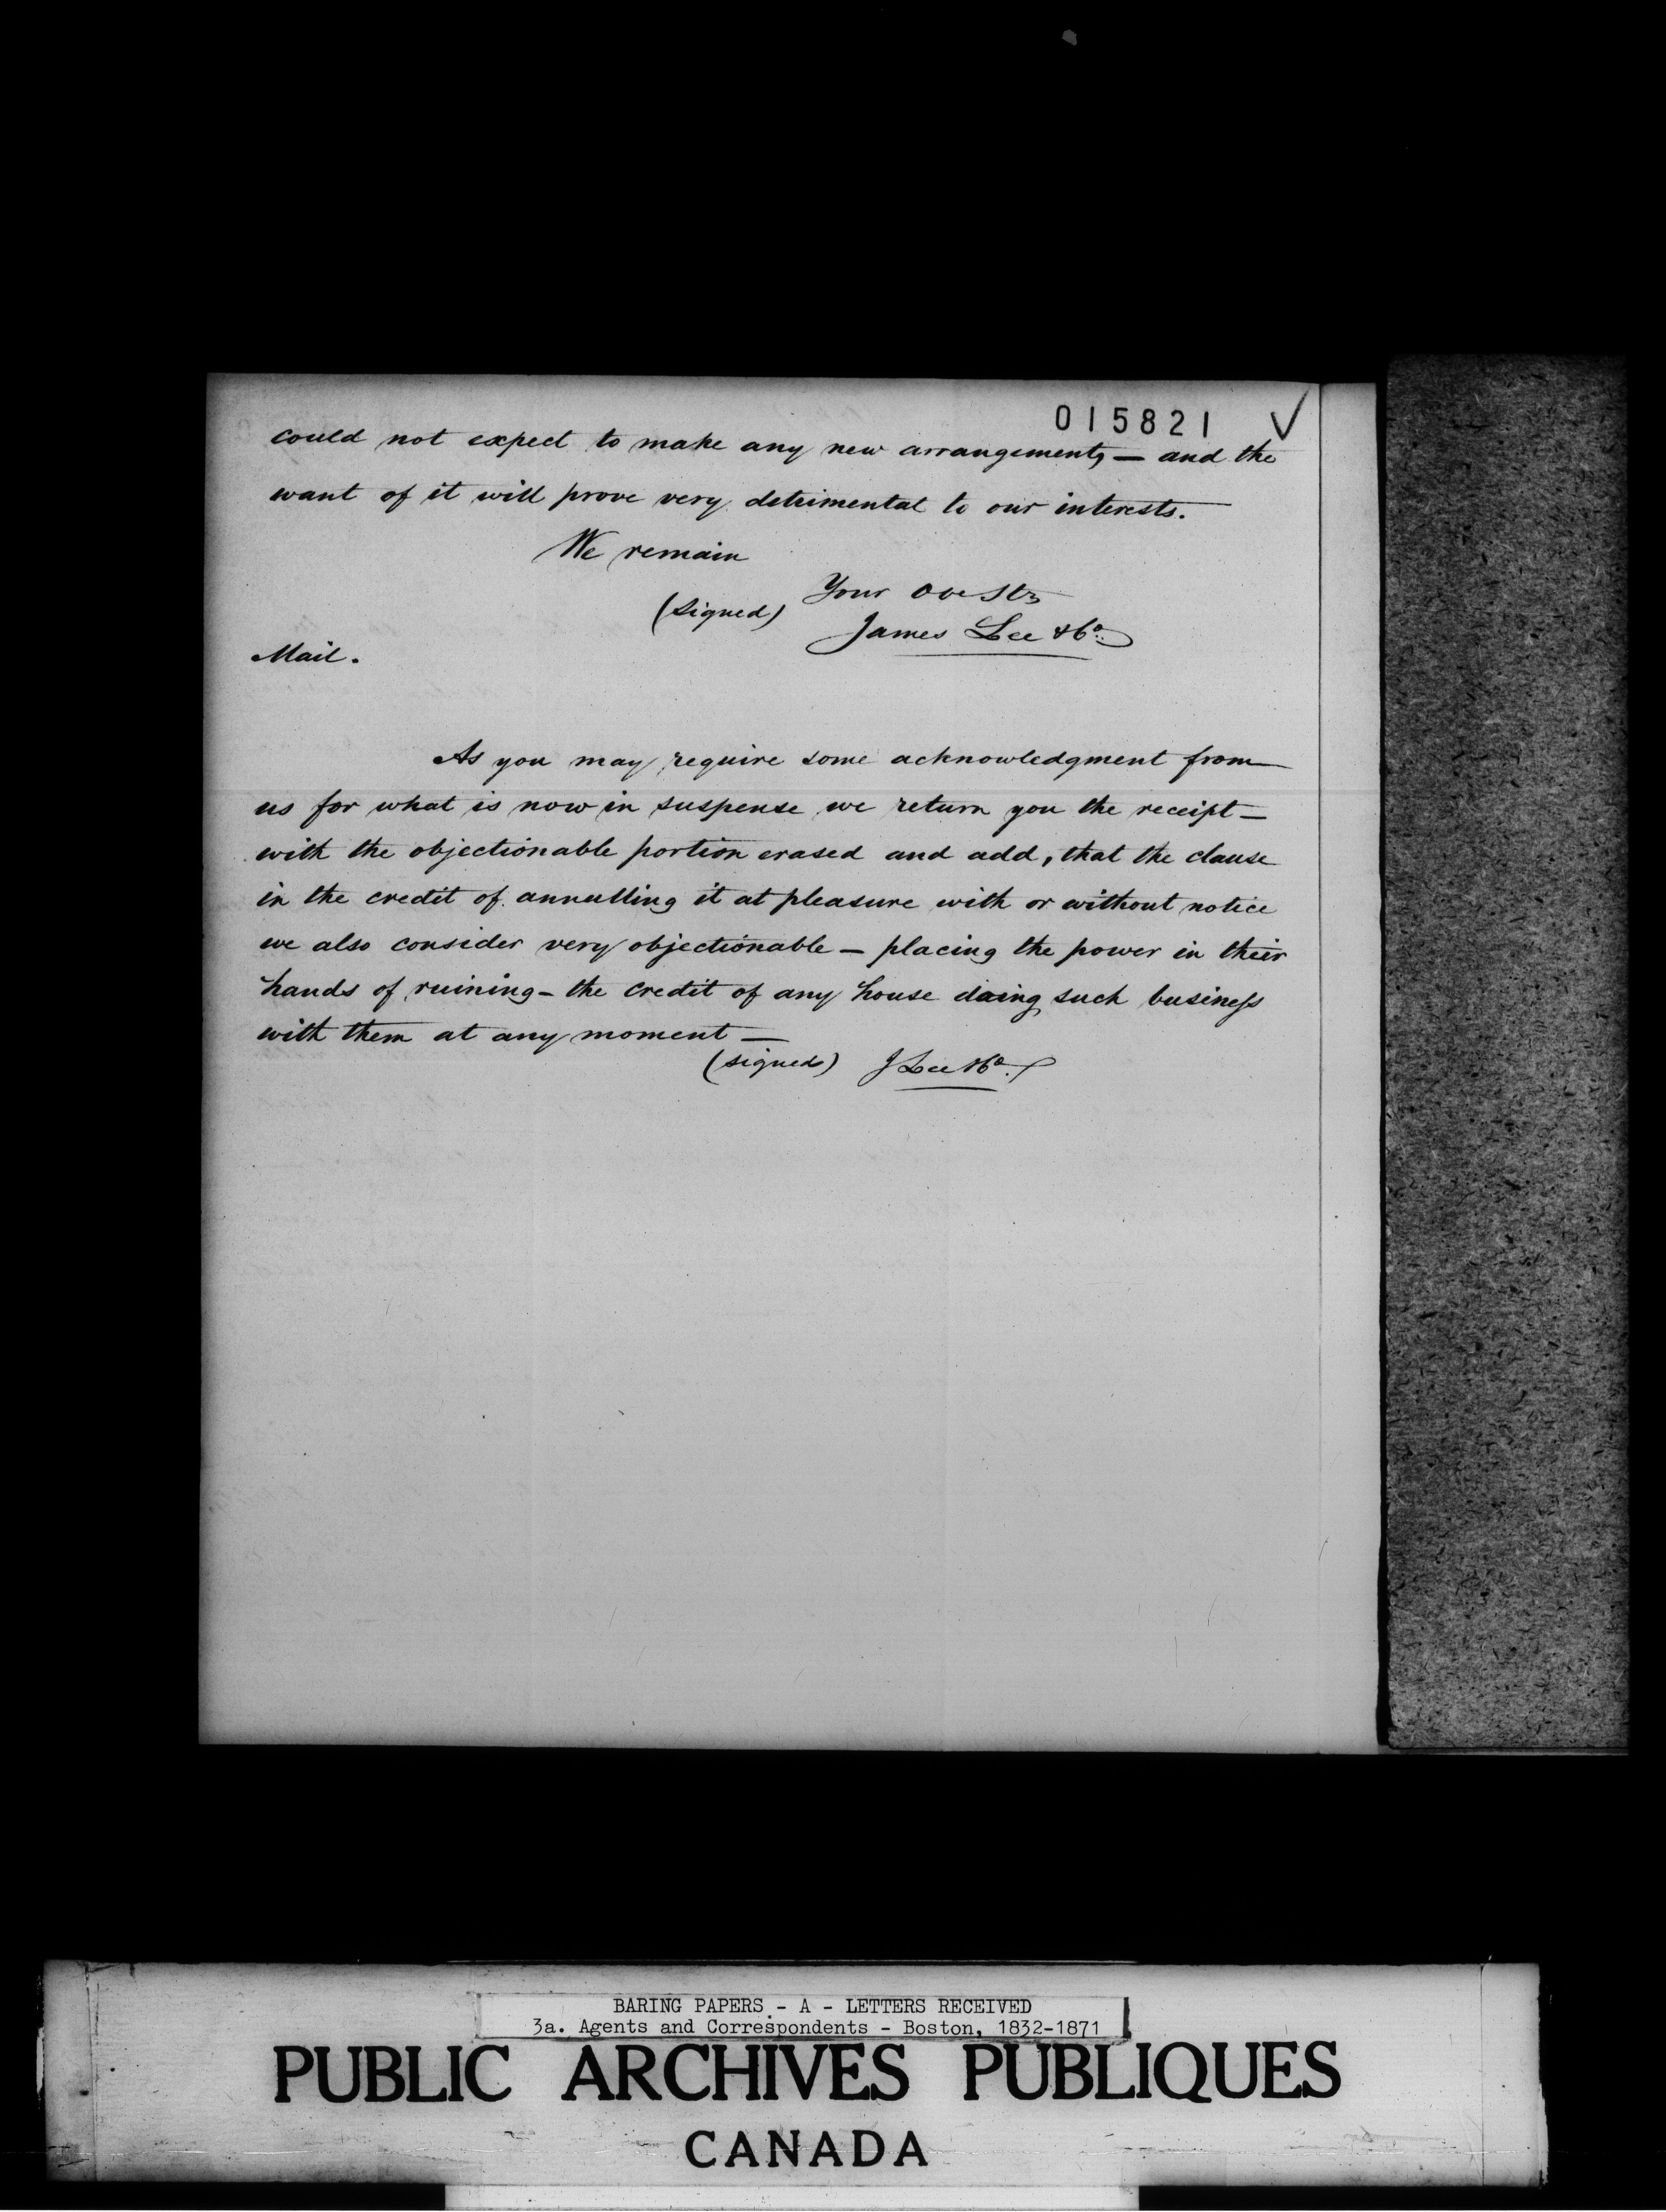 015821 ✓
could not expect to make any new arrangements — and the
want of it will prove very detrimental to our interests.
We remain
Your Obe Sts
(signed)
James Lee & Co.
Mail.
As you may require some acknowledgment from
us for what is now in suspense we return you the receipt —
with the objectionable portion erased and add, that the clause
in the credit of annulling it at pleasure with or without notice
we also consider very objectionable — placing the power in their
hands of ruining - the credit of any house doing such business
with them at any moment —
(signed) J Lee & Co.
BARING PAPERS - A - LETTERS RECEIVED
3a. Agents and Correspondents - Boston, 1832-1871
PUBLIC ARCHIVES PUBLIQUES
CANADA